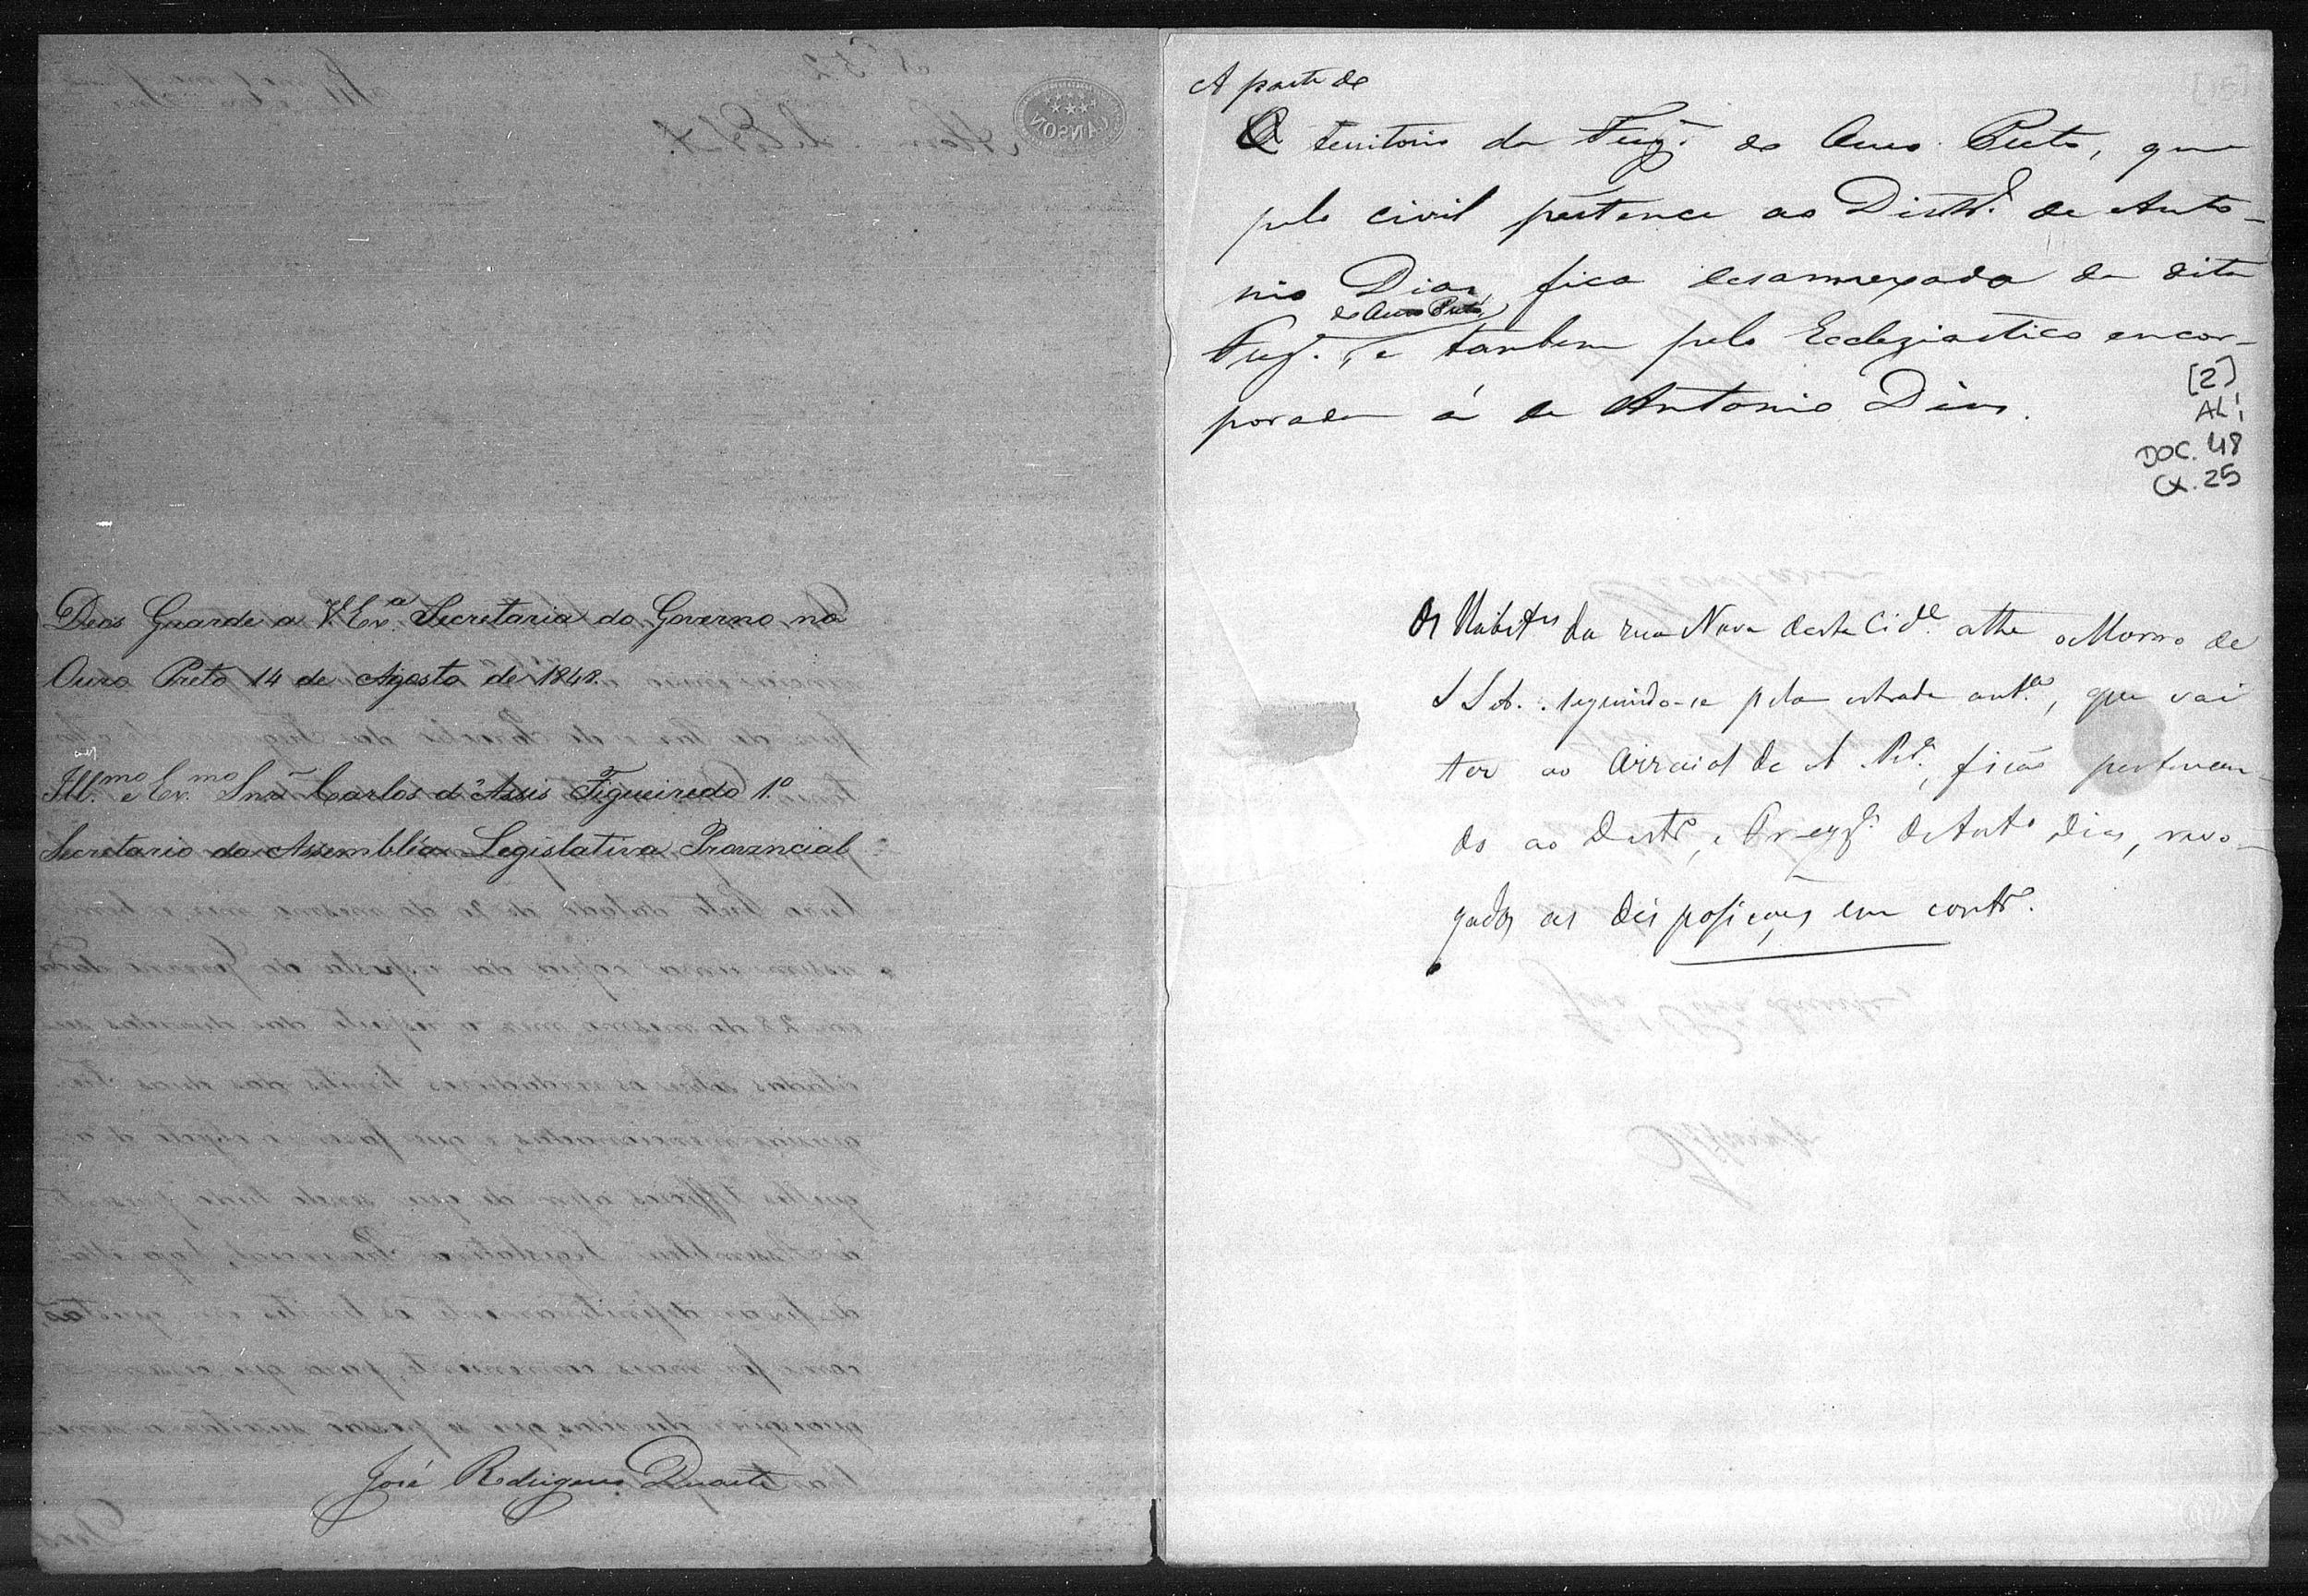 Deos Guarde a V. Ex.ª Secretaria do Governo no
Ouro Preto 14 de Agosto de 1848.
Ill.mo e Ex.mo Snr Carlos d'Assis Figueiredo 1.º
Secretario da Assembléa Legislativa Provincial
José Rodrigues Duarte
CANSON
A parte do
O territorio da Freg.ª do Ouro Preto, que
pelo civil pertence ao Distr.º de Anto-
nio Dias, fica desannexada da dita
do Ouro Preto,
Freg.ª, e tambem pelo Ecclesiastico encor-
porada á de Antonio Dias.
[2]
AL1
DOC. 48
CX. 25
Os Habit.es da rua Nova desta Cid.e athe o Morro de
S. Seb. seguindo-se pela estrada ant.ª, que vai
ter ao Arraial de A. Per.ª, ficão pertencen-
do ao Distr.º, e Freg.ª de Ant.º Dias, revo-
gadas as disposições em contr.º